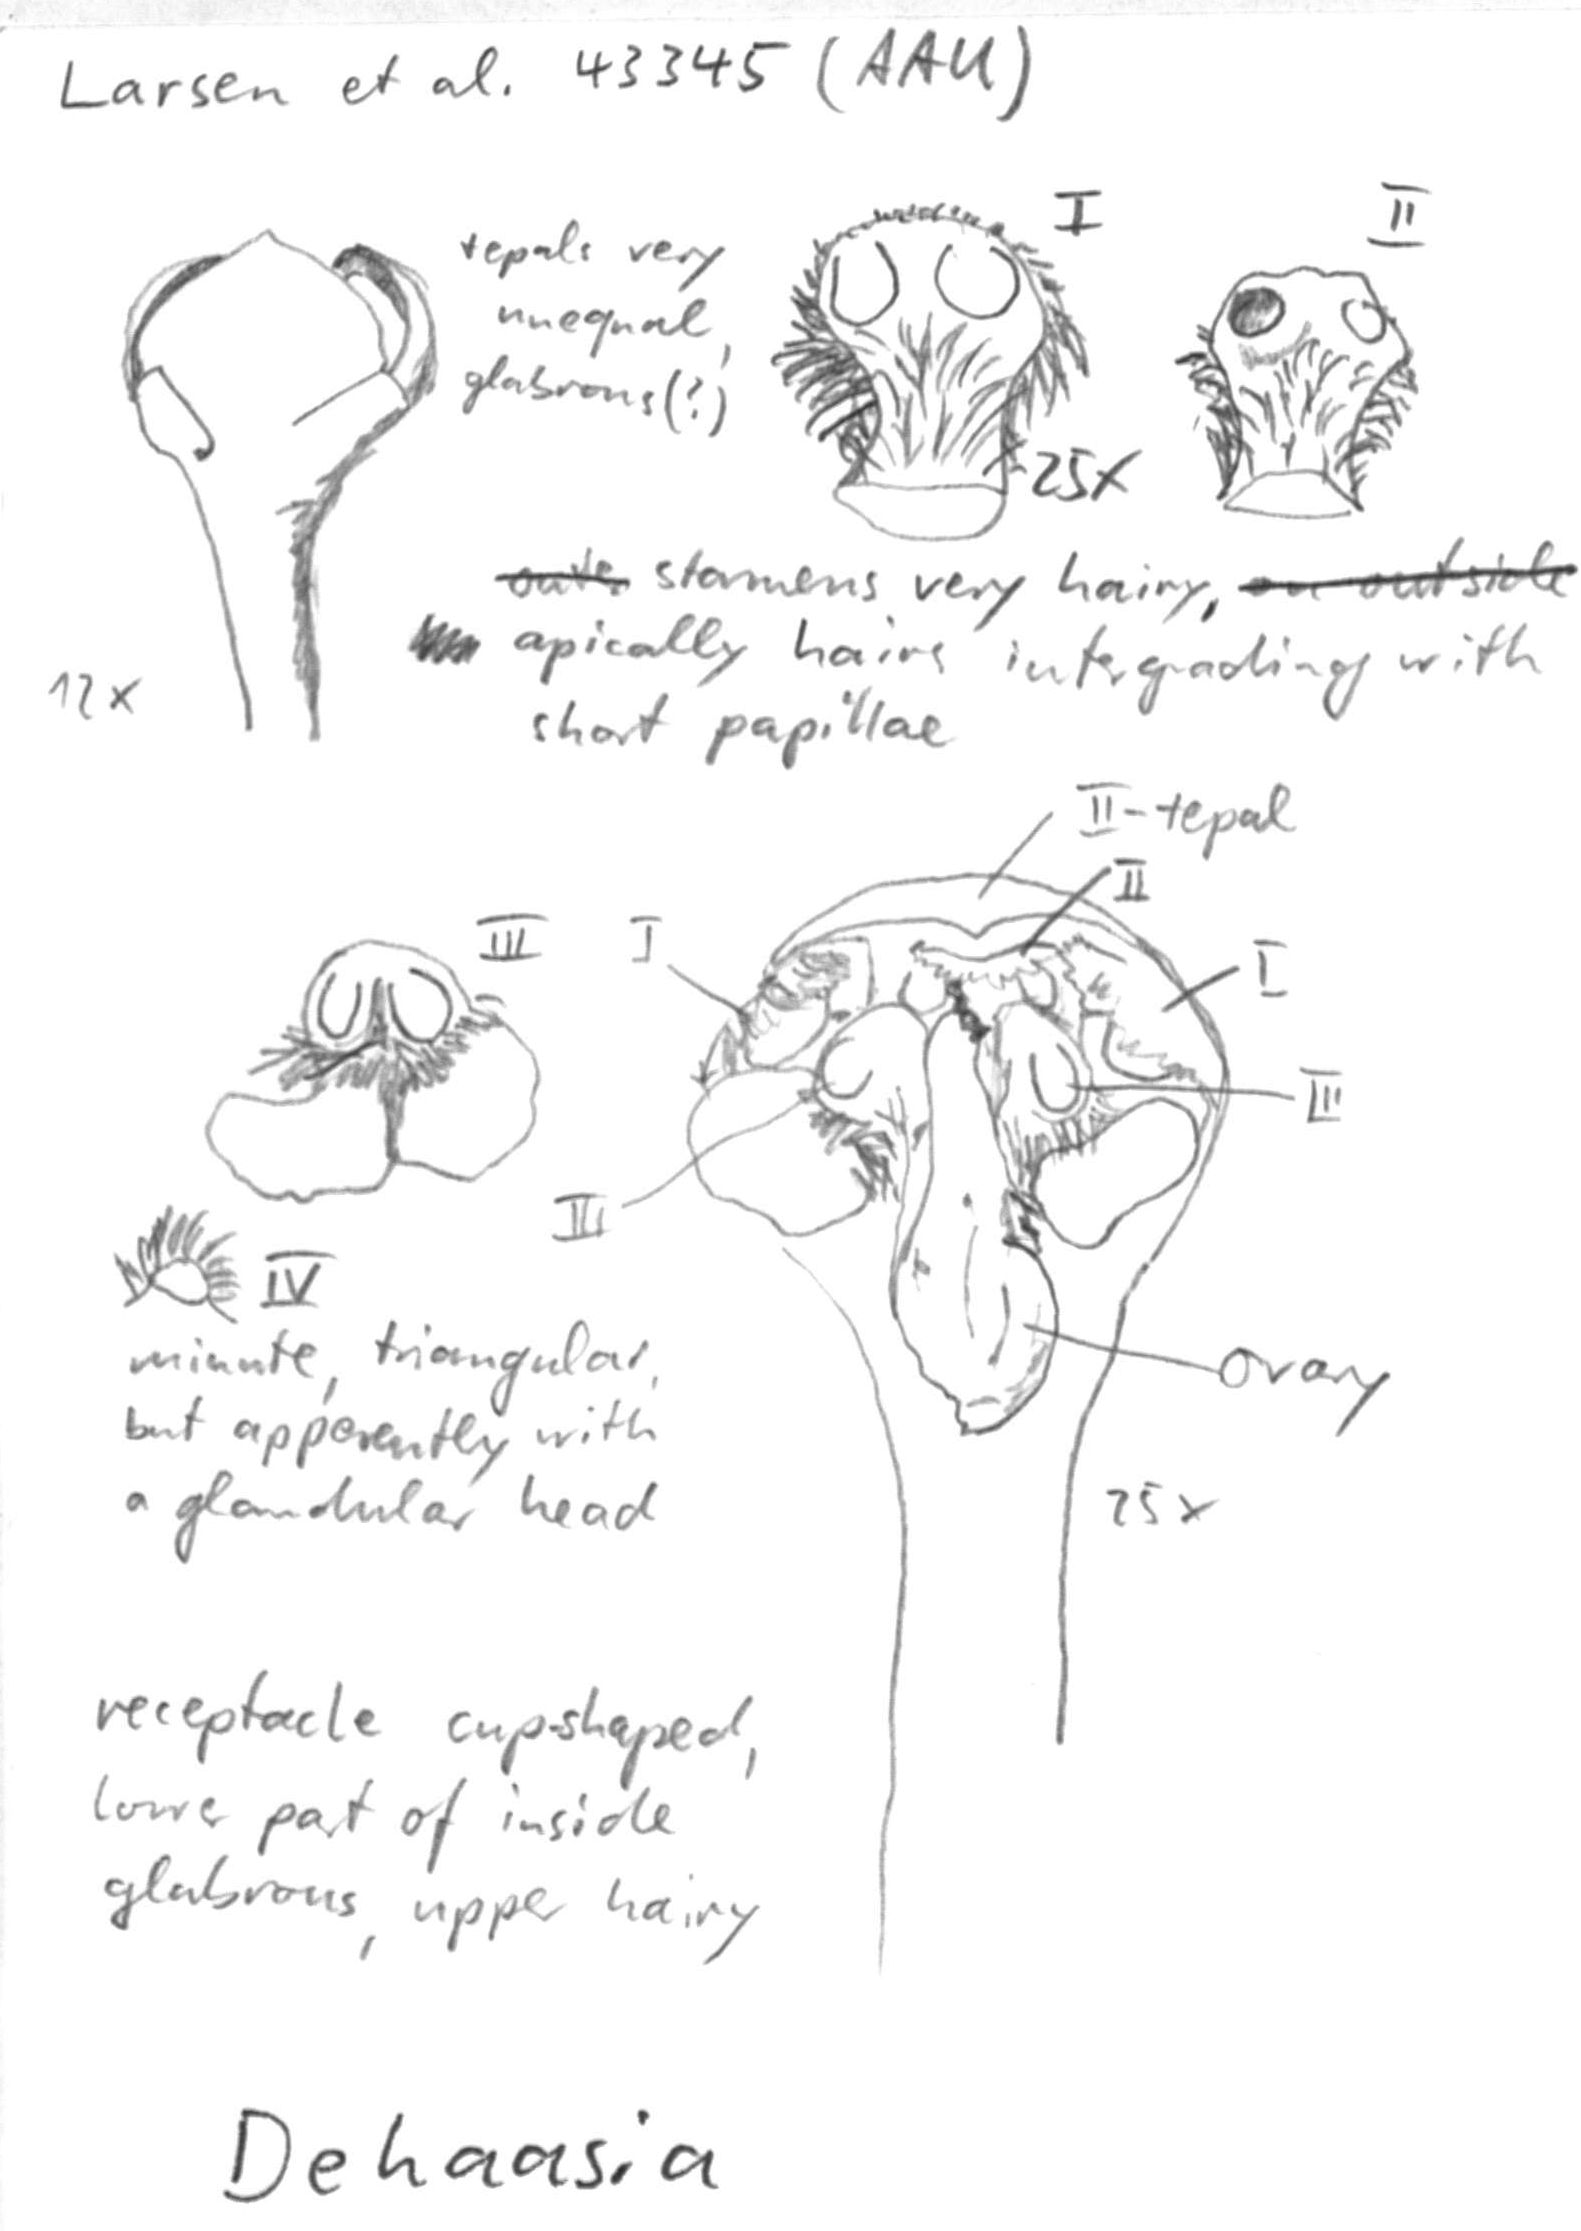 Larsen et al. 43345 (AAU)
tepals very
unequal,
glabrous(?)
I
II
25x
outer stamens very hairy, on outside
apically hairs intergrading with
short papillae
12x
II-tepal
II
III
I
I
III
III
IV
minute, triangular,
but apparently with
a glandular head
ovary
25x
receptacle cup-shaped,
lower part of inside
glabrous, upper hairy
Dehaasia